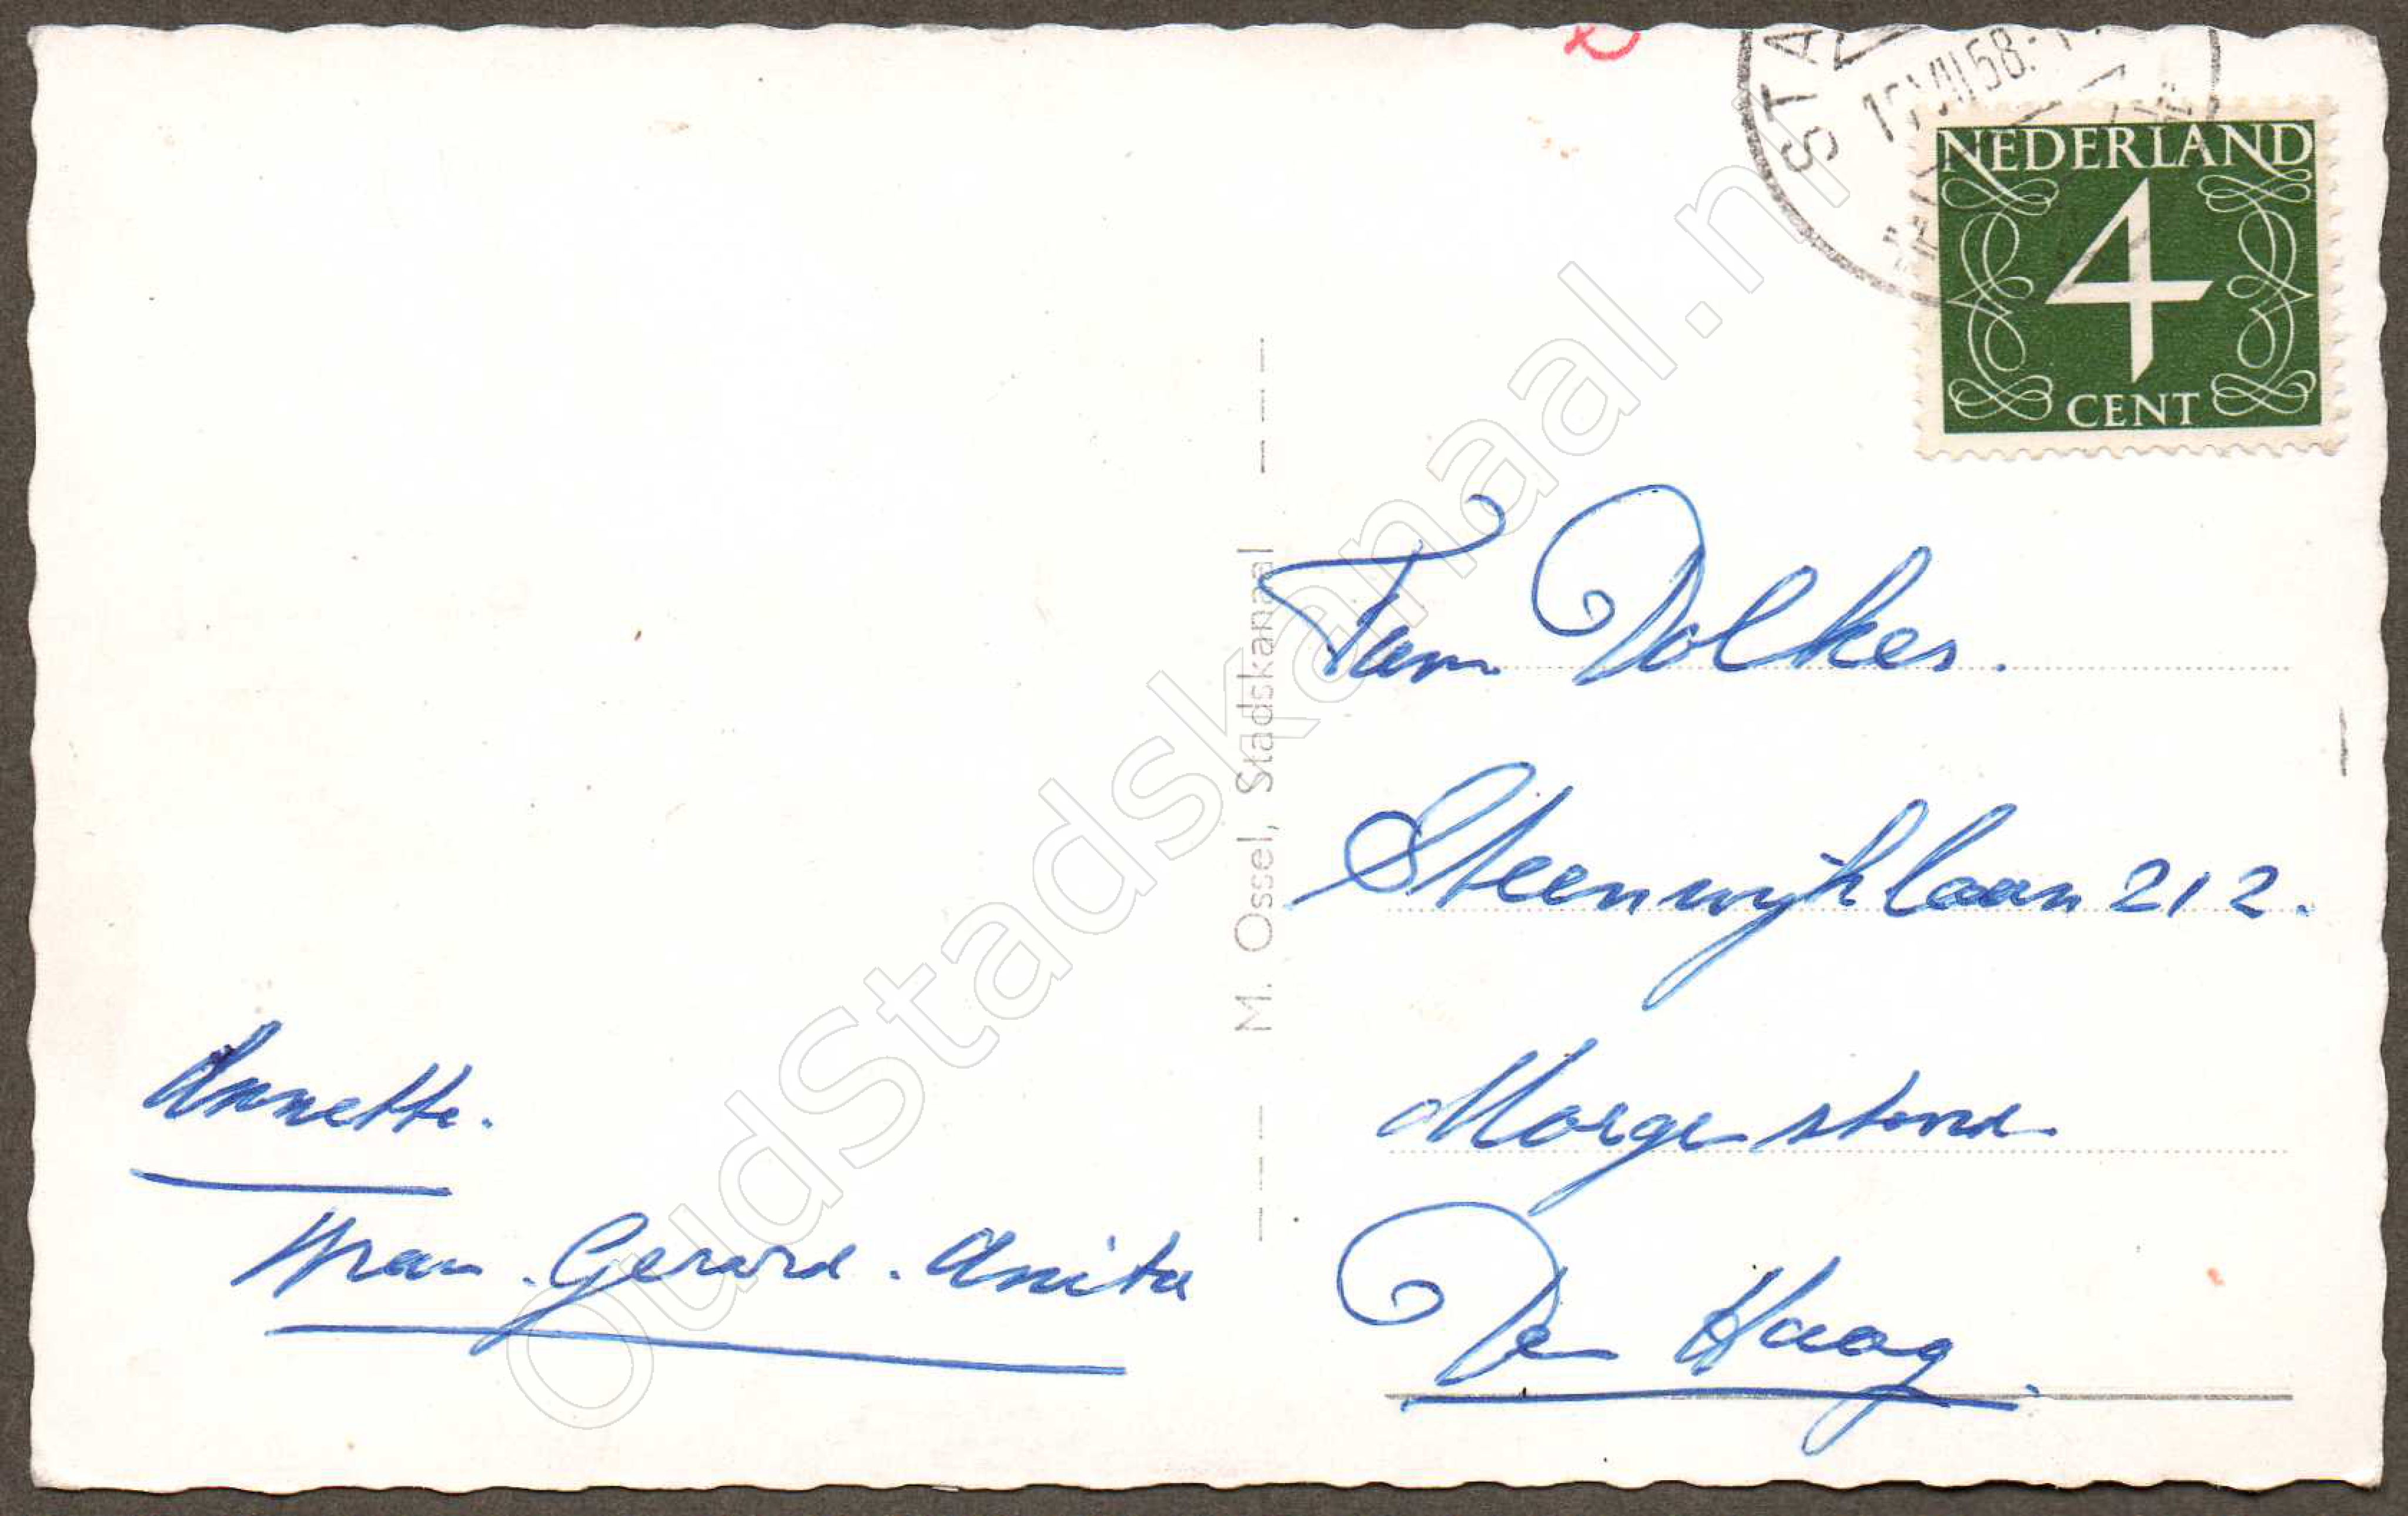 STA
VII 58
NEDERLAND
4
CENT
Fam Dolkes.
Steenwijklaan 212.
Morgenstond
Den Haag.
M. Ossel, Stadskanaal
Annette.
Gerard. Anita
OudStadskanaal.nl